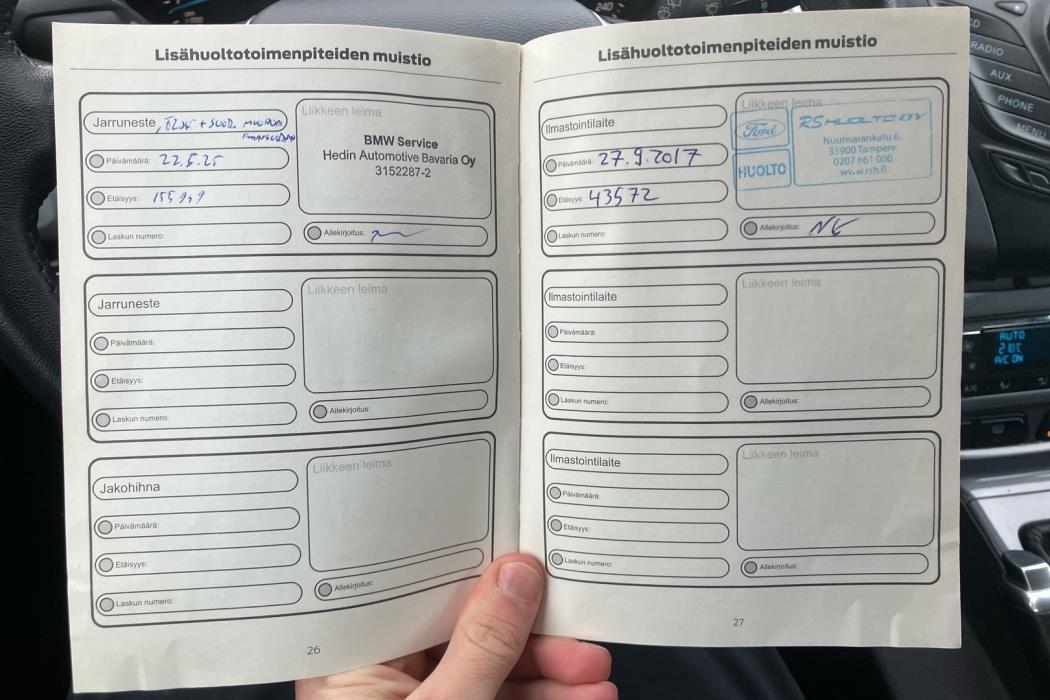 Lisähuoltotoimenpiteiden muistio
Jarruneste, ÖLJY + SUOD.
Päivämäärä: 22.5.25
Etäisyys: 155 949
Laskun numero:
Liikkeen leima
BMW Service
Hedin Automotive Bavaria Oy
3152287-2
Allekirjoitus:
Jarruneste
Päivämäärä:
Etäisyys:
Laskun numero:
Liikkeen leima
Allekirjoitus:
Jakohihna
Päivämäärä:
Etäisyys:
Laskun numero:
Liikkeen leima
Allekirjoitus:
26
Lisähuoltotoimenpiteiden muistio
Ilmastointilaite
Päivämäärä: 27.9.2017
Etäisyys: 43572
Laskun numero:
Liikkeen leima
Ford
HUOLTO
RS HUOLTO OY
Nuutisarankatu 6,
33900 Tampere
0207 661 000
www.rsh.fi
Allekirjoitus:
Ilmastointilaite
Päivämäärä:
Etäisyys:
Laskun numero:
Liikkeen leima
Allekirjoitus:
Ilmastointilaite
Päivämäärä:
Etäisyys:
Laskun numero:
Liikkeen leima
Allekirjoitus:
27
240
CD
RADIO
AUX
PHONE
MENU
AUTO
A/C ON
A/C